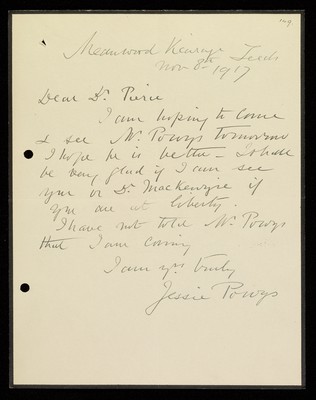 149
Meanwood Vicarage Leeds
Nov 8th 1917
Dear Dr. Pierce
I am hoping to come
& see Mr. Powys tomorrow
I hope he is better – I shall
be very glad if I can see
you or Dr. Mackenzie if
you are at liberty.
I have not told Mr. Powys
that I am coming
I am yrs truly
Jessie Powys